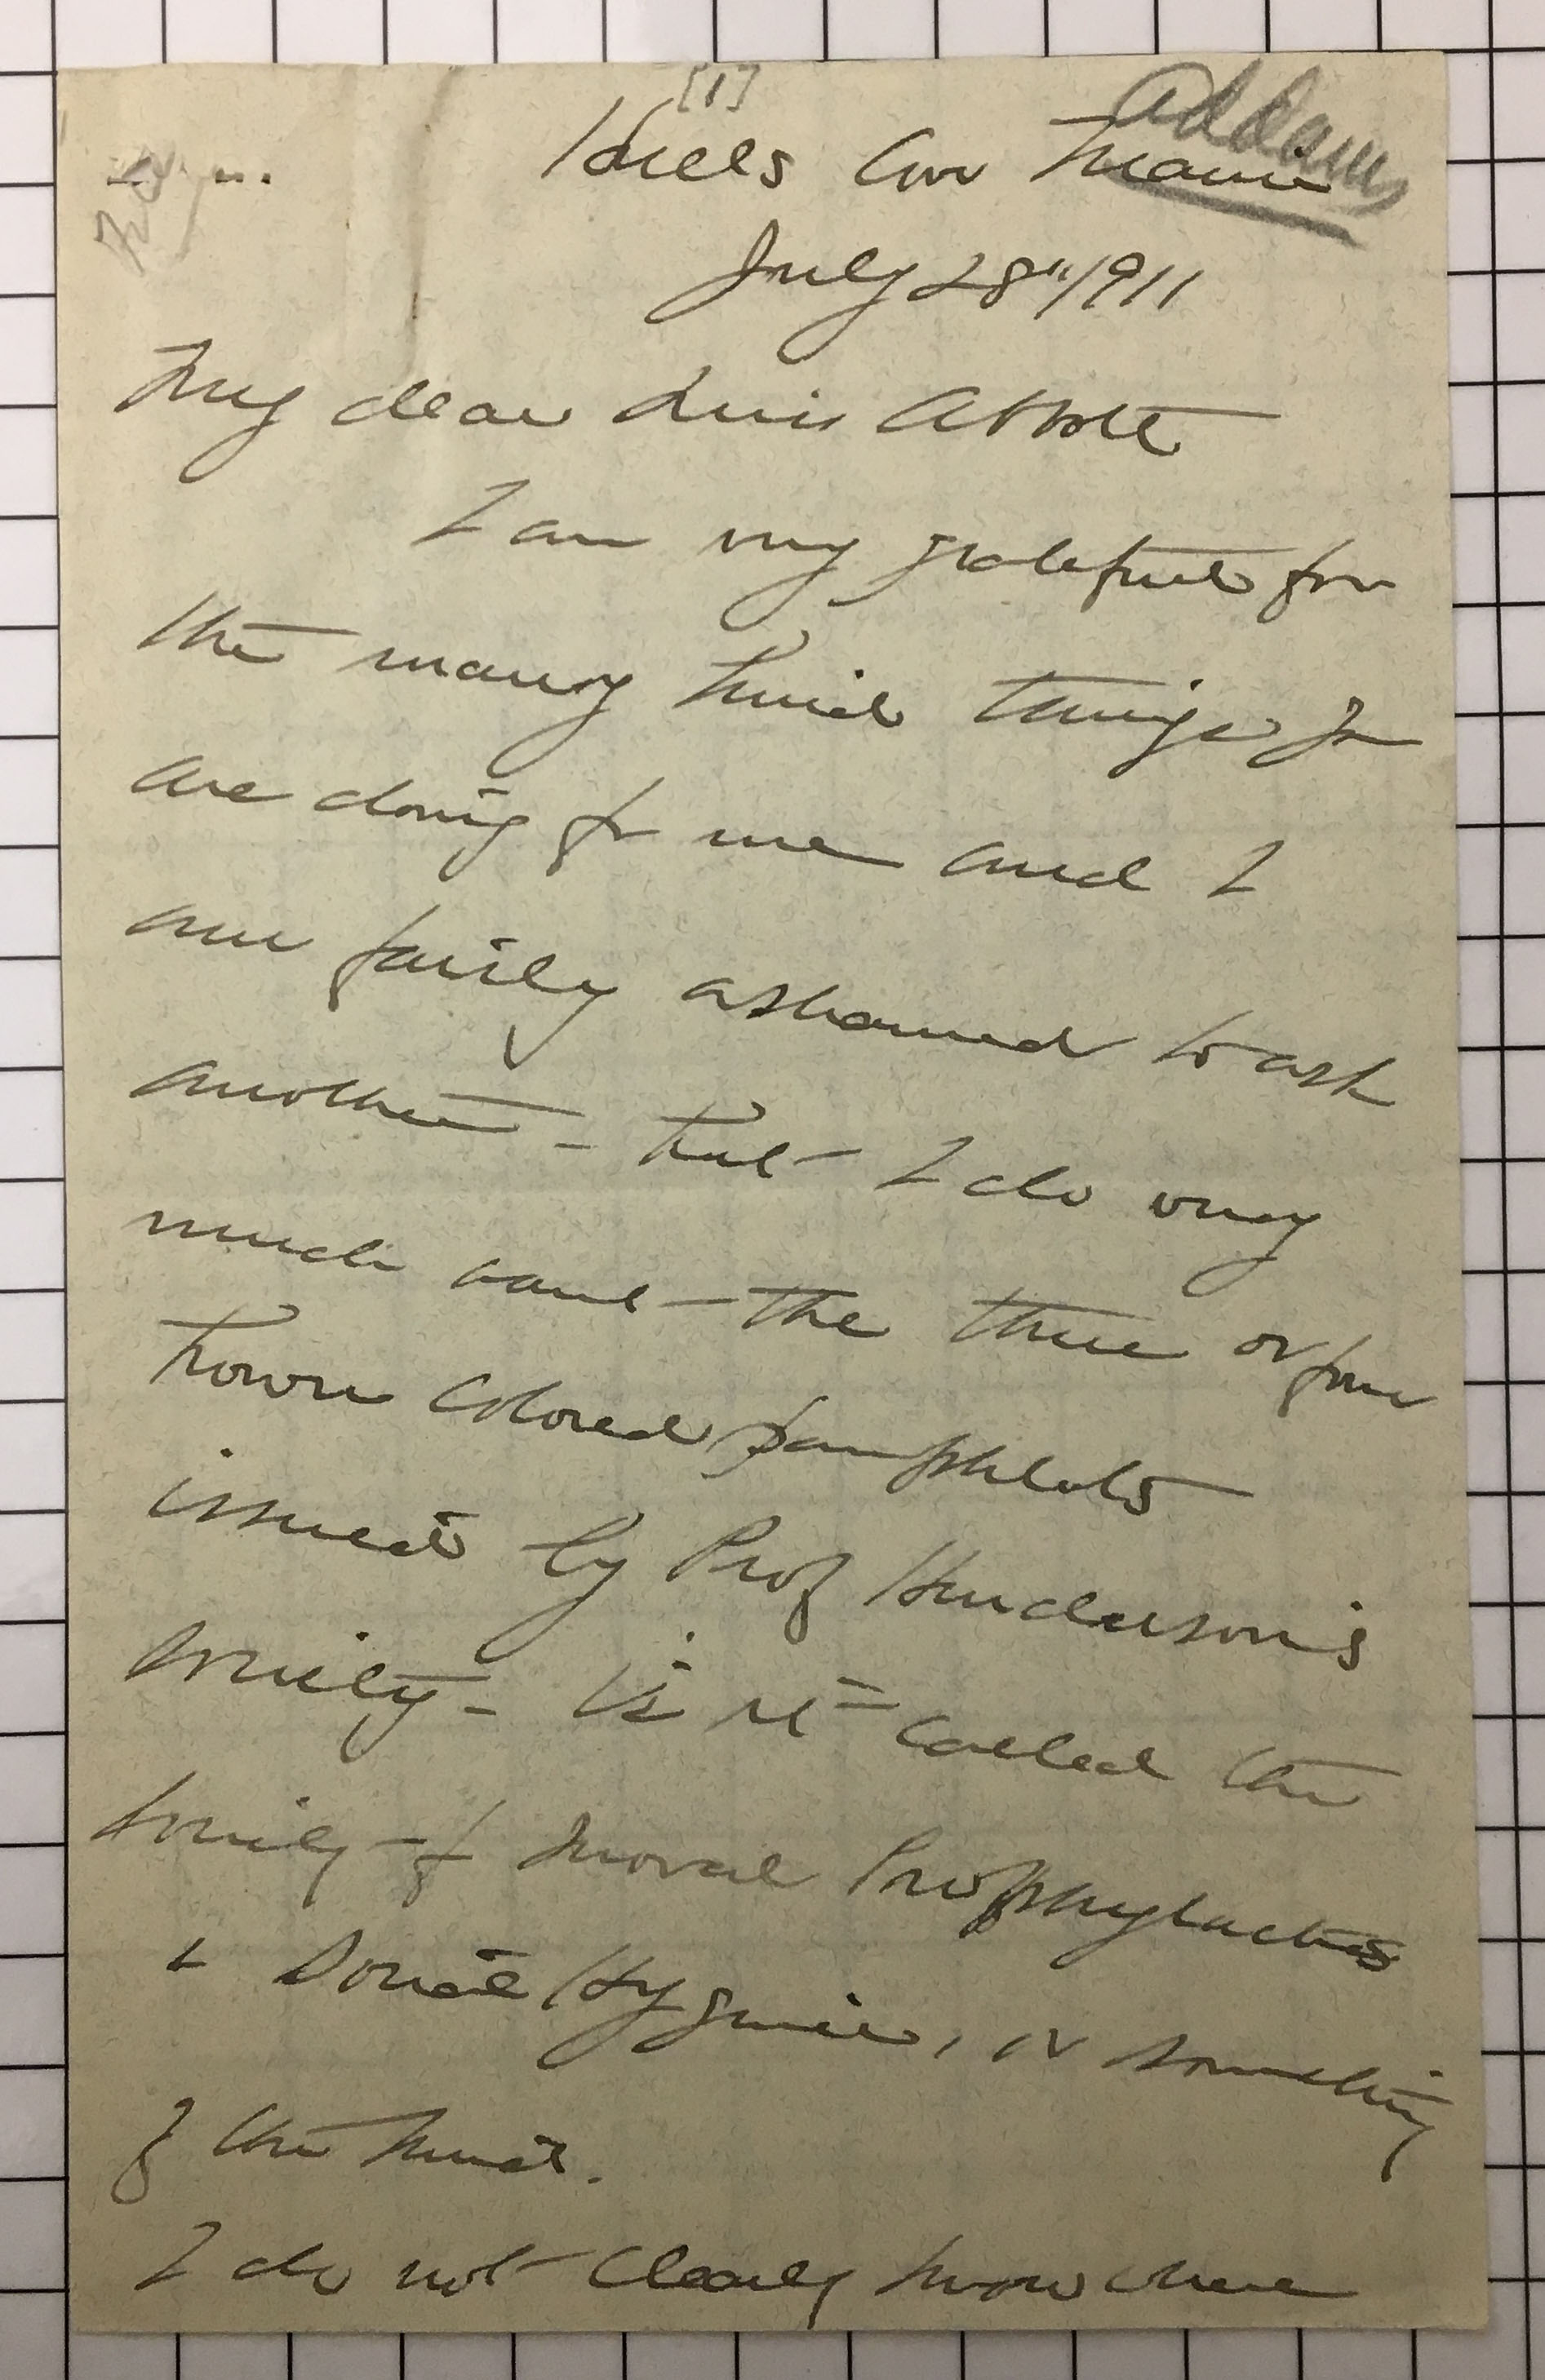 [1]
Addams
Hulls Cove Maine
July 28" 1911
My dear Miss Abbott
I am very grateful for
the many kind things you
are doing for me and I
am fairly ashamed to ask
another - but I do very
much want the three or four
brown colored pamphlets
issued by Prof Henderson's
society - is it called the
Society of Moral Prophylactics
& Social Hygiene, or something
of the kind.
I do not clearly know where